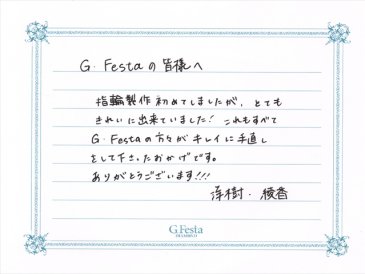 G. Festaの皆様へ
指輪製作初めてしましたが、とても
きれいに出来ていました！これもすべて
G. Festaの方々がキレイに手直し
をして下さったおかげです。
ありがとうございます!!!
洋樹・綾香
G.Festa